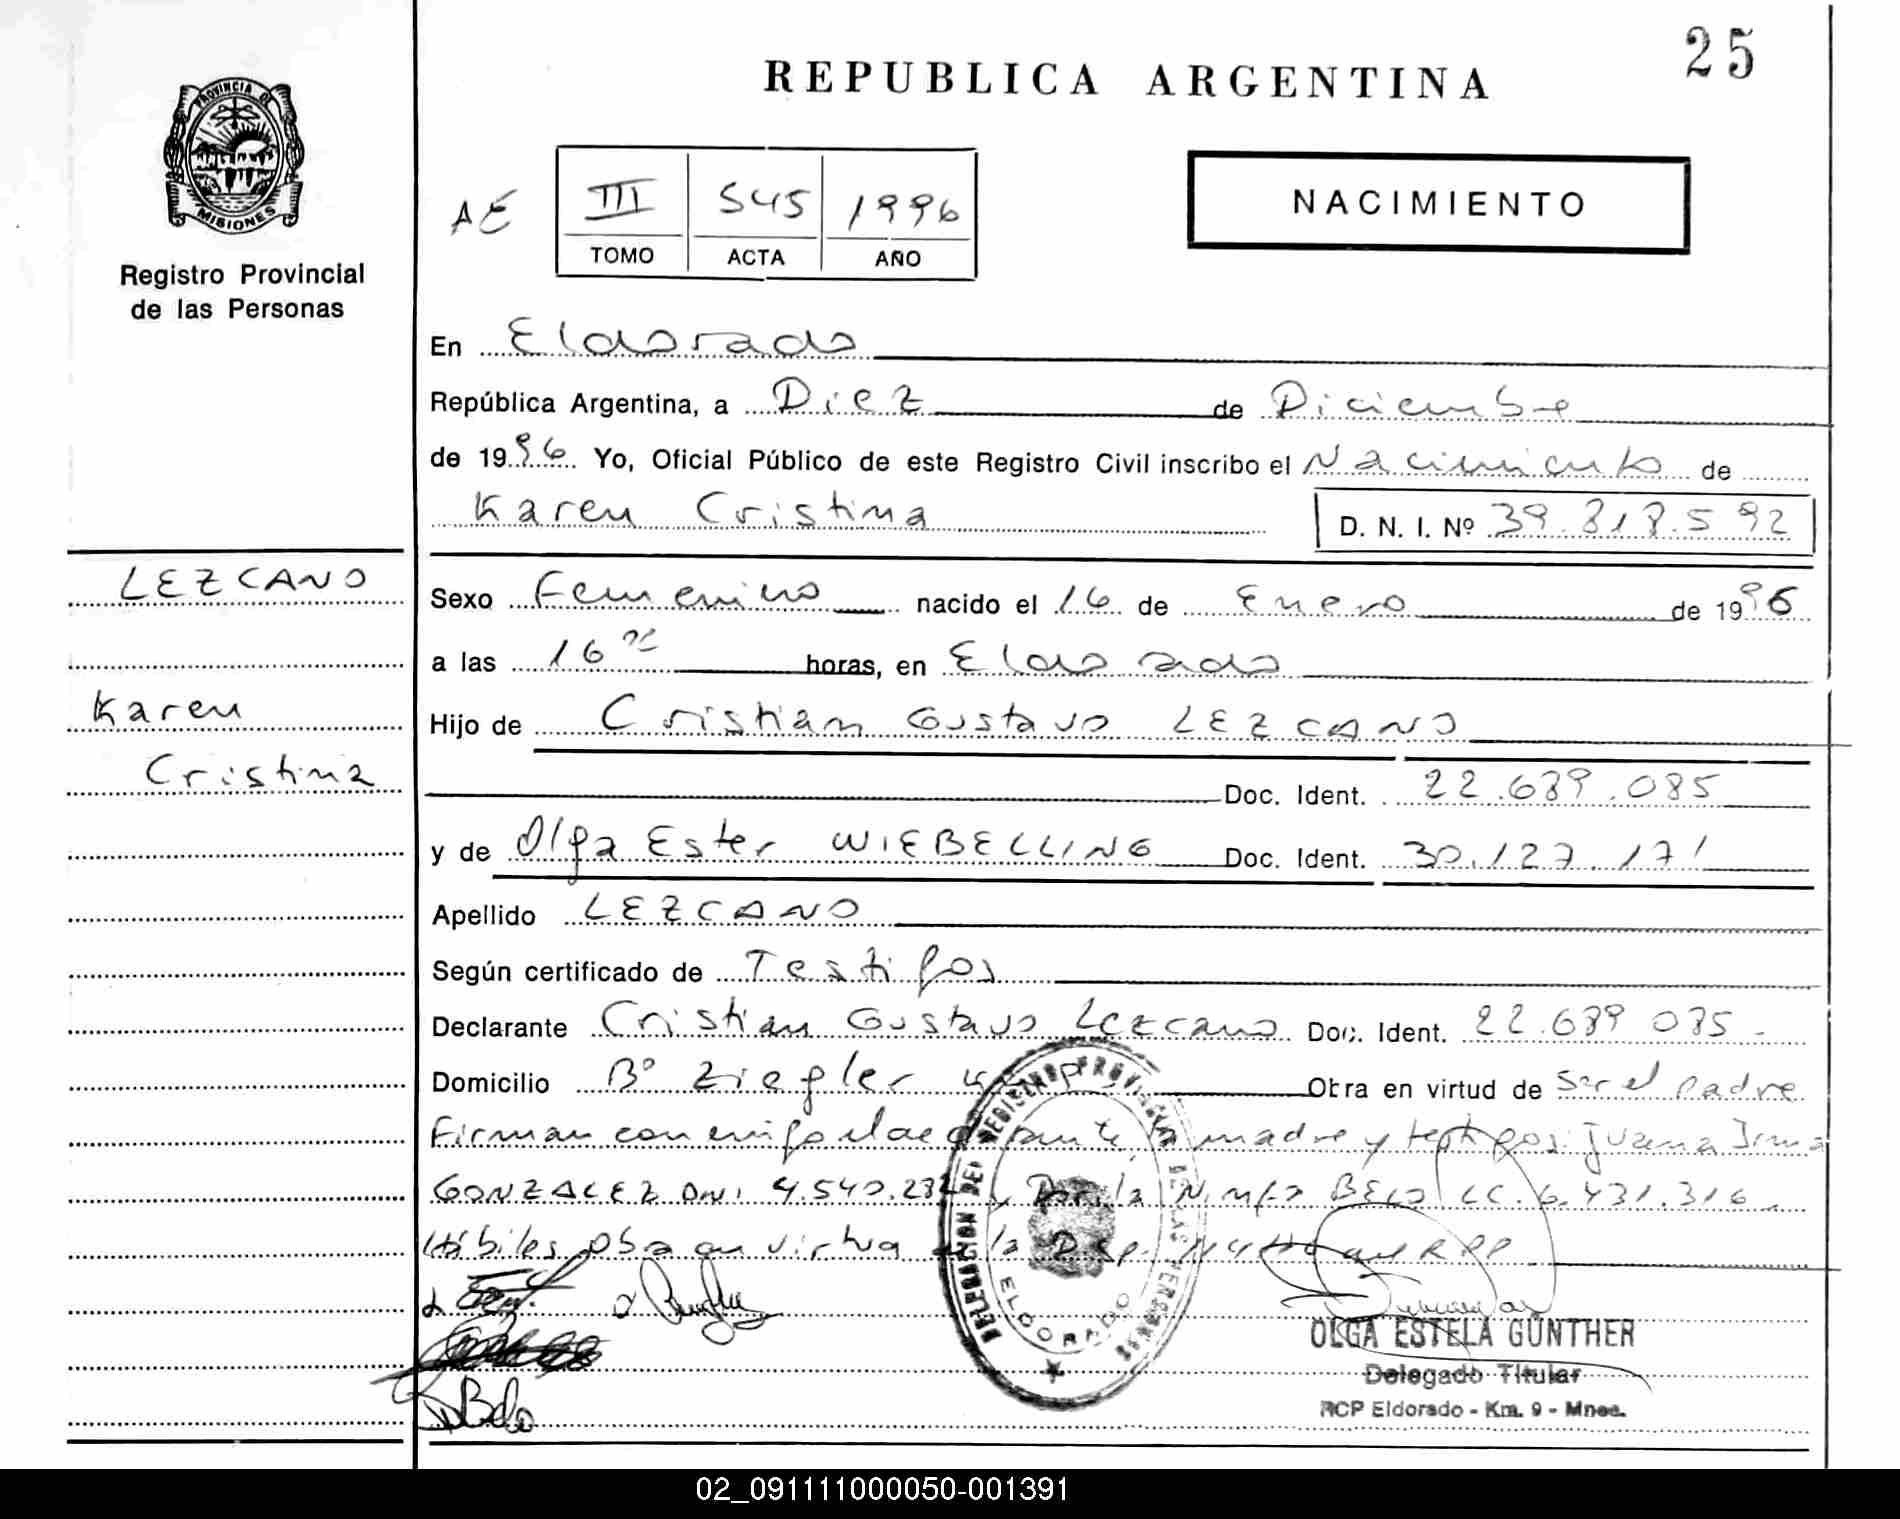 25
REPUBLICA ARGENTINA
PROVINCIA DE
MISIONES
Registro Provincial
de las Personas
AE III 545 1996
TOMO ACTA AÑO
NACIMIENTO
En Eldorado
República Argentina, a Diez de Diciembre
de 1996 Yo, Oficial Público de este Registro Civil inscribo el Nacimiento de
Karen Cristina D. N. I. Nº 39.818.592
LEZCANO
Karen
Cristina
Sexo Femenino nacido el 16 de Enero de 1996
a las 16 horas, en Eldorado
Hijo de Cristian Gustavo LEZCANO
Doc. Ident. 22.689.085
y de Olga Ester WIEBELLING Doc. Ident. 30.127.171
Apellido LEZCANO
Según certificado de Testigos
Declarante Cristian Gustavo Lezcano Doc. Ident. 22.689 085-
Domicilio Bº Ziegler Obra en virtud de Ser el padre
Firman conmigo declarante, madre y testigos: Juana Irma
GONZALEZ DNI 4.540.232 y Ninfa BELO LC. 6.431.316
Hábiles, obra en virtud de la Disp. RPP
DELEGACION DEL REGISTRO PROVINCIAL DE LAS PERSONAS
ELDORADO
Belo
OLGA ESTELA GÜNTHER
Delegado Titular
RCP Eldorado - Km. 9 - Mnes.
02_091111000050-001391